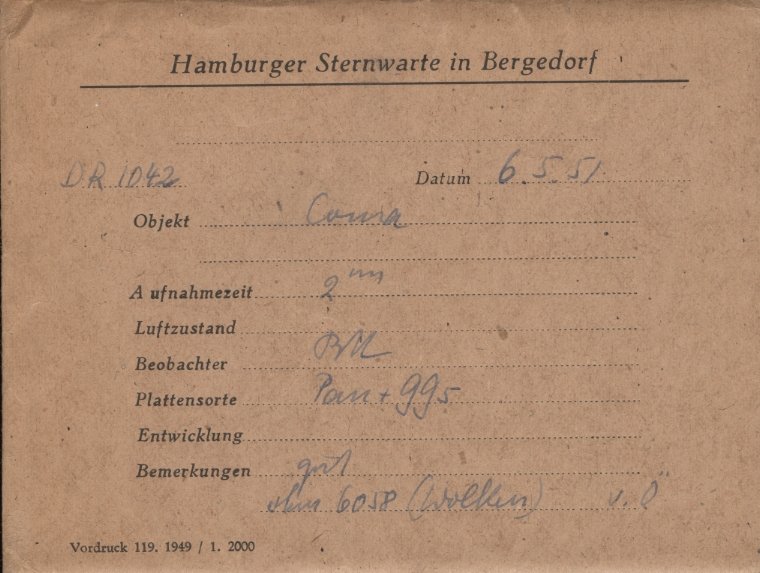 Hamburger Sternwarte in Bergedorf
DR 1042 Datum 6.5.51
Objekt Coma
Aufnahmezeit 2 m
Luftzustand
Beobachter
Plattensorte Pan + 995
Entwicklung
Bemerkungen gut
6058 (Wolken) v. Ö
Vordruck 119. 1949 / 1. 2000